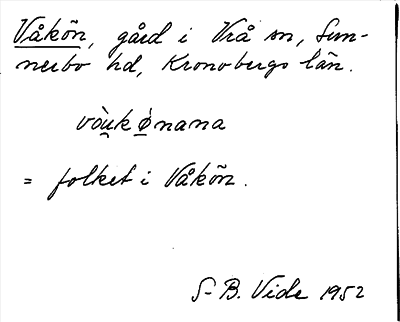 Våkön, gård i Vrå sn, Sun-
nerbo hd, Kronobergs län.
vòu̯kø̀nana
= folket i Våkön.
S-B. Vide 1952